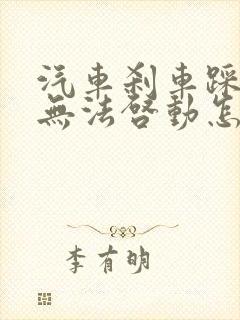 汽車刹車踩
無法啓動怎
李有明